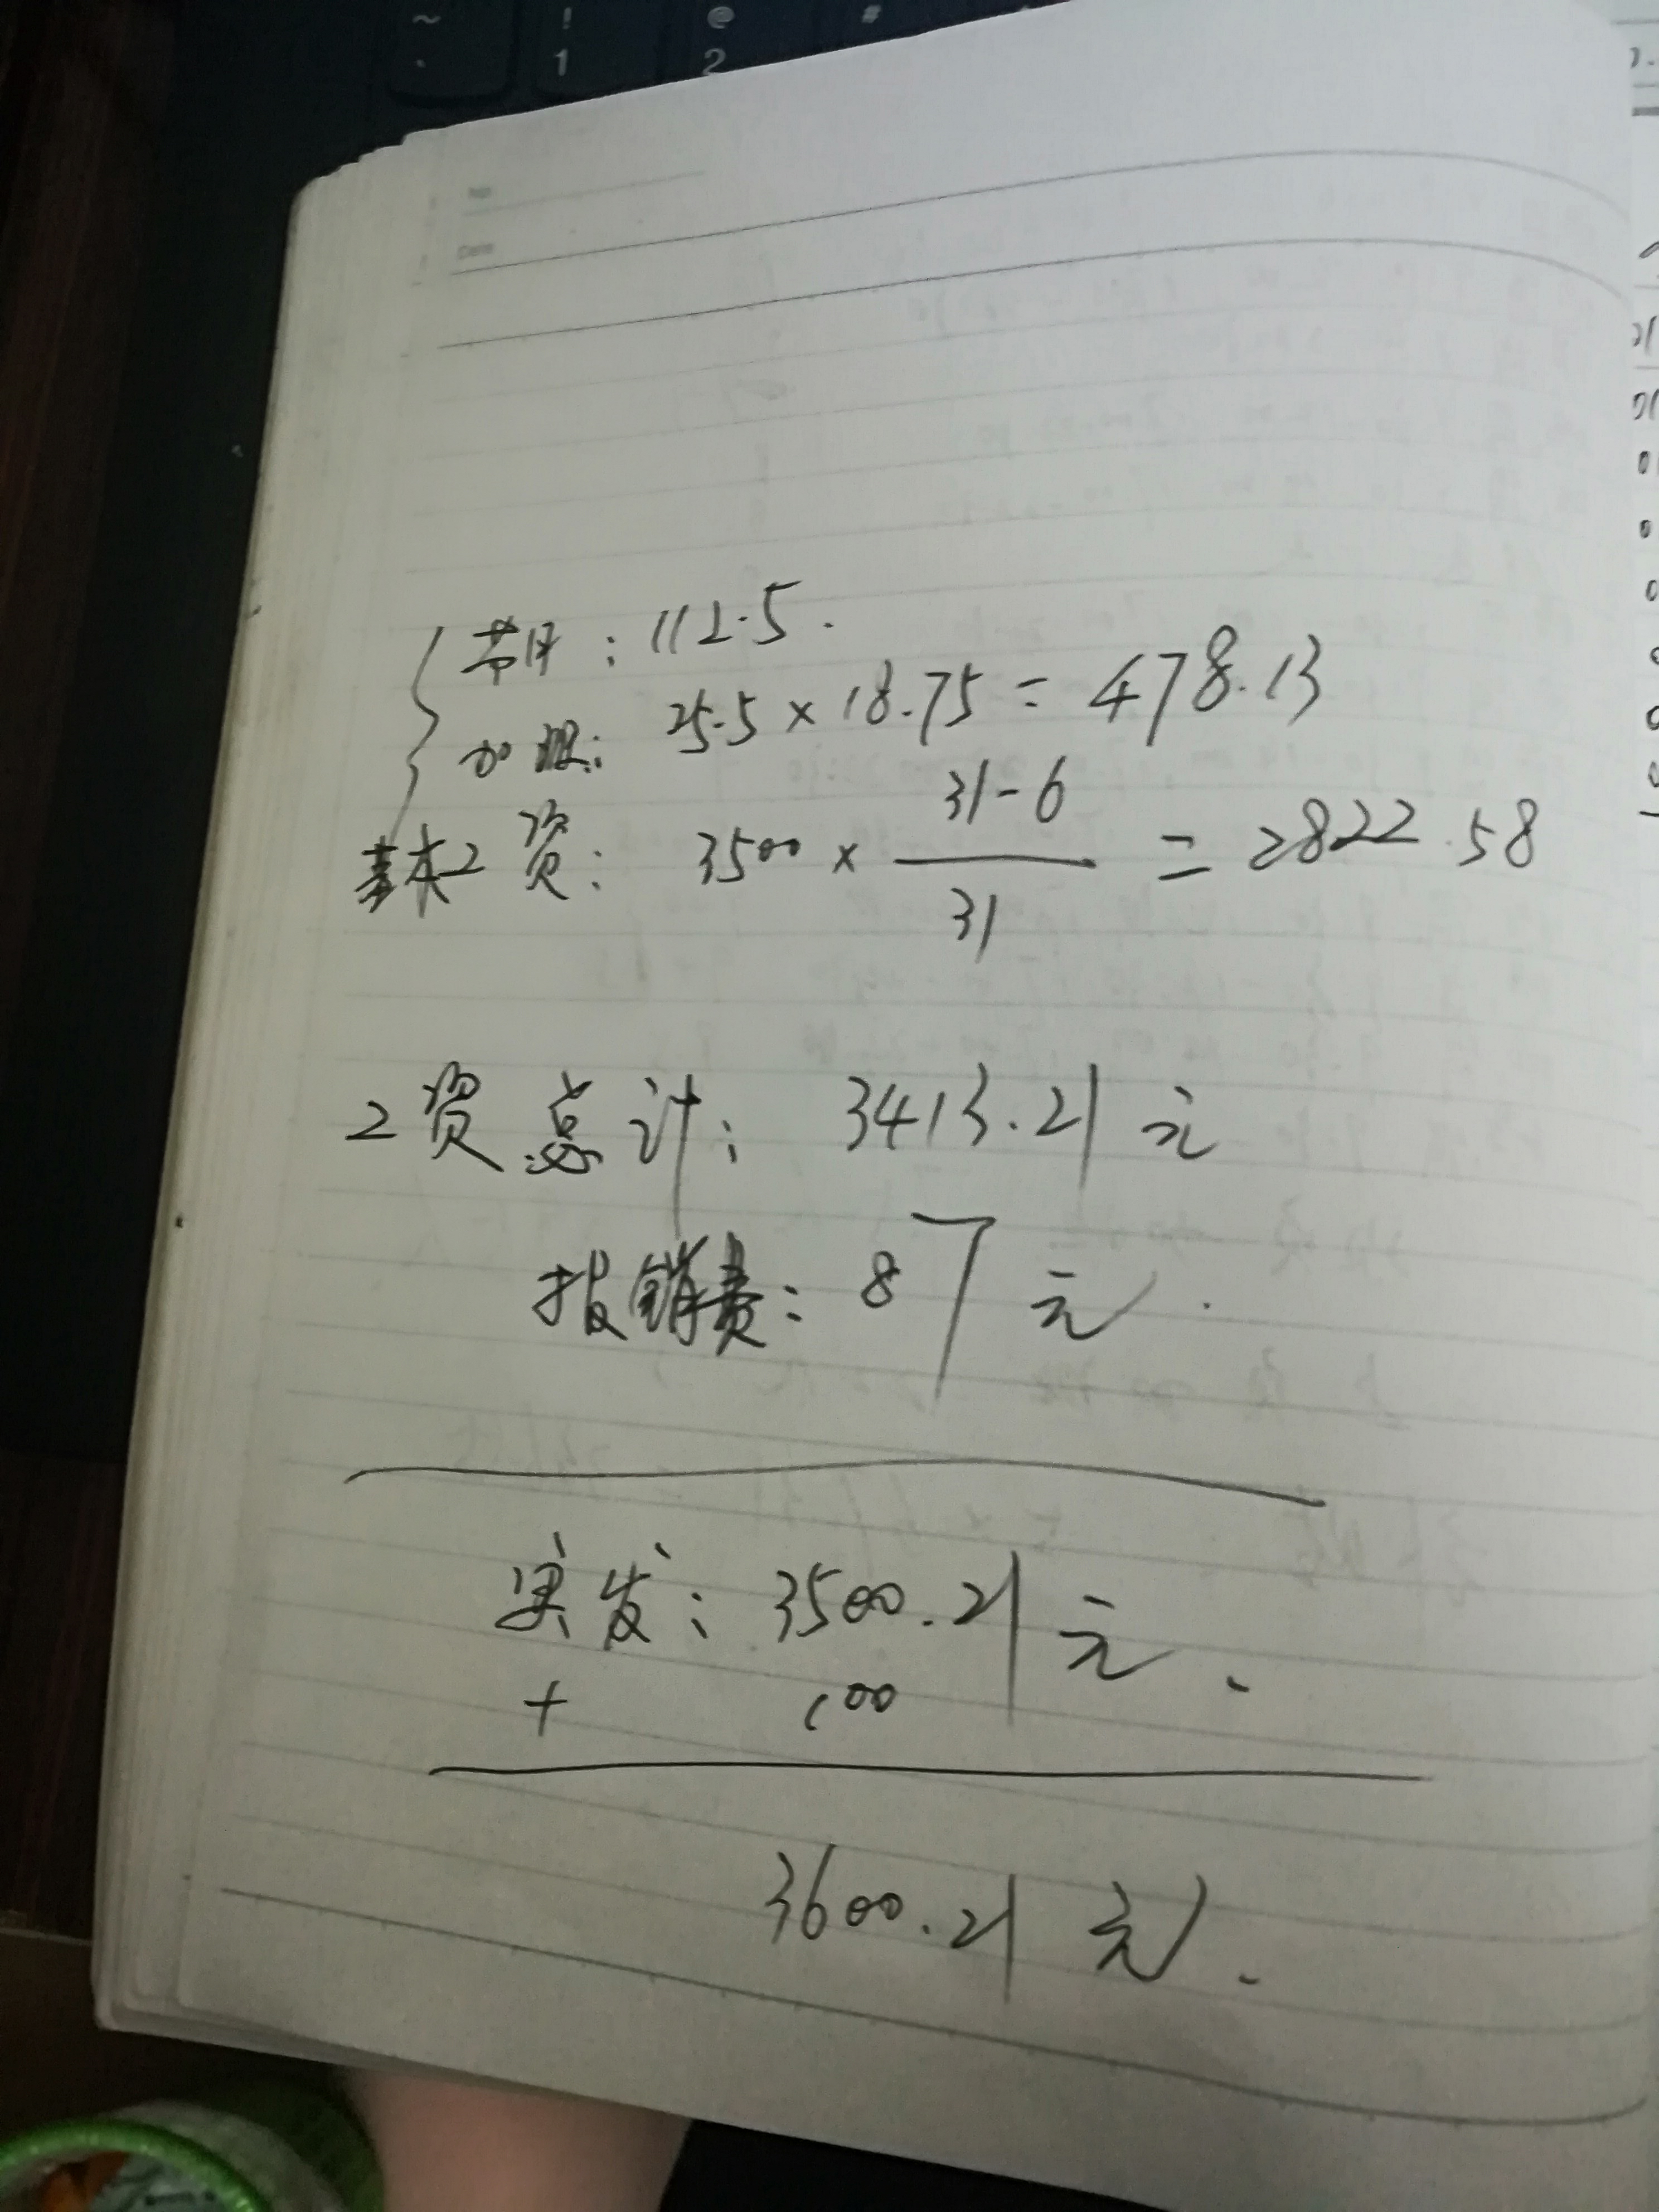 ~ ! @ #
` 1 2
No.
Date
节日：112.5.
加班：25.5×18.75=478.13
基本工资：3500×(31-6)/31=2822.58
工资总计：3413.21元
报销费：87元.
实发：3500.21元.
+ 100
3600.21元.